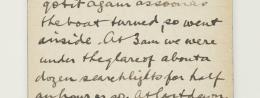 got it again as soon as
the boat turned, so went
inside. At 3am we were
under the glare of about a
dozen searchlights for half
an hour or so. At last down